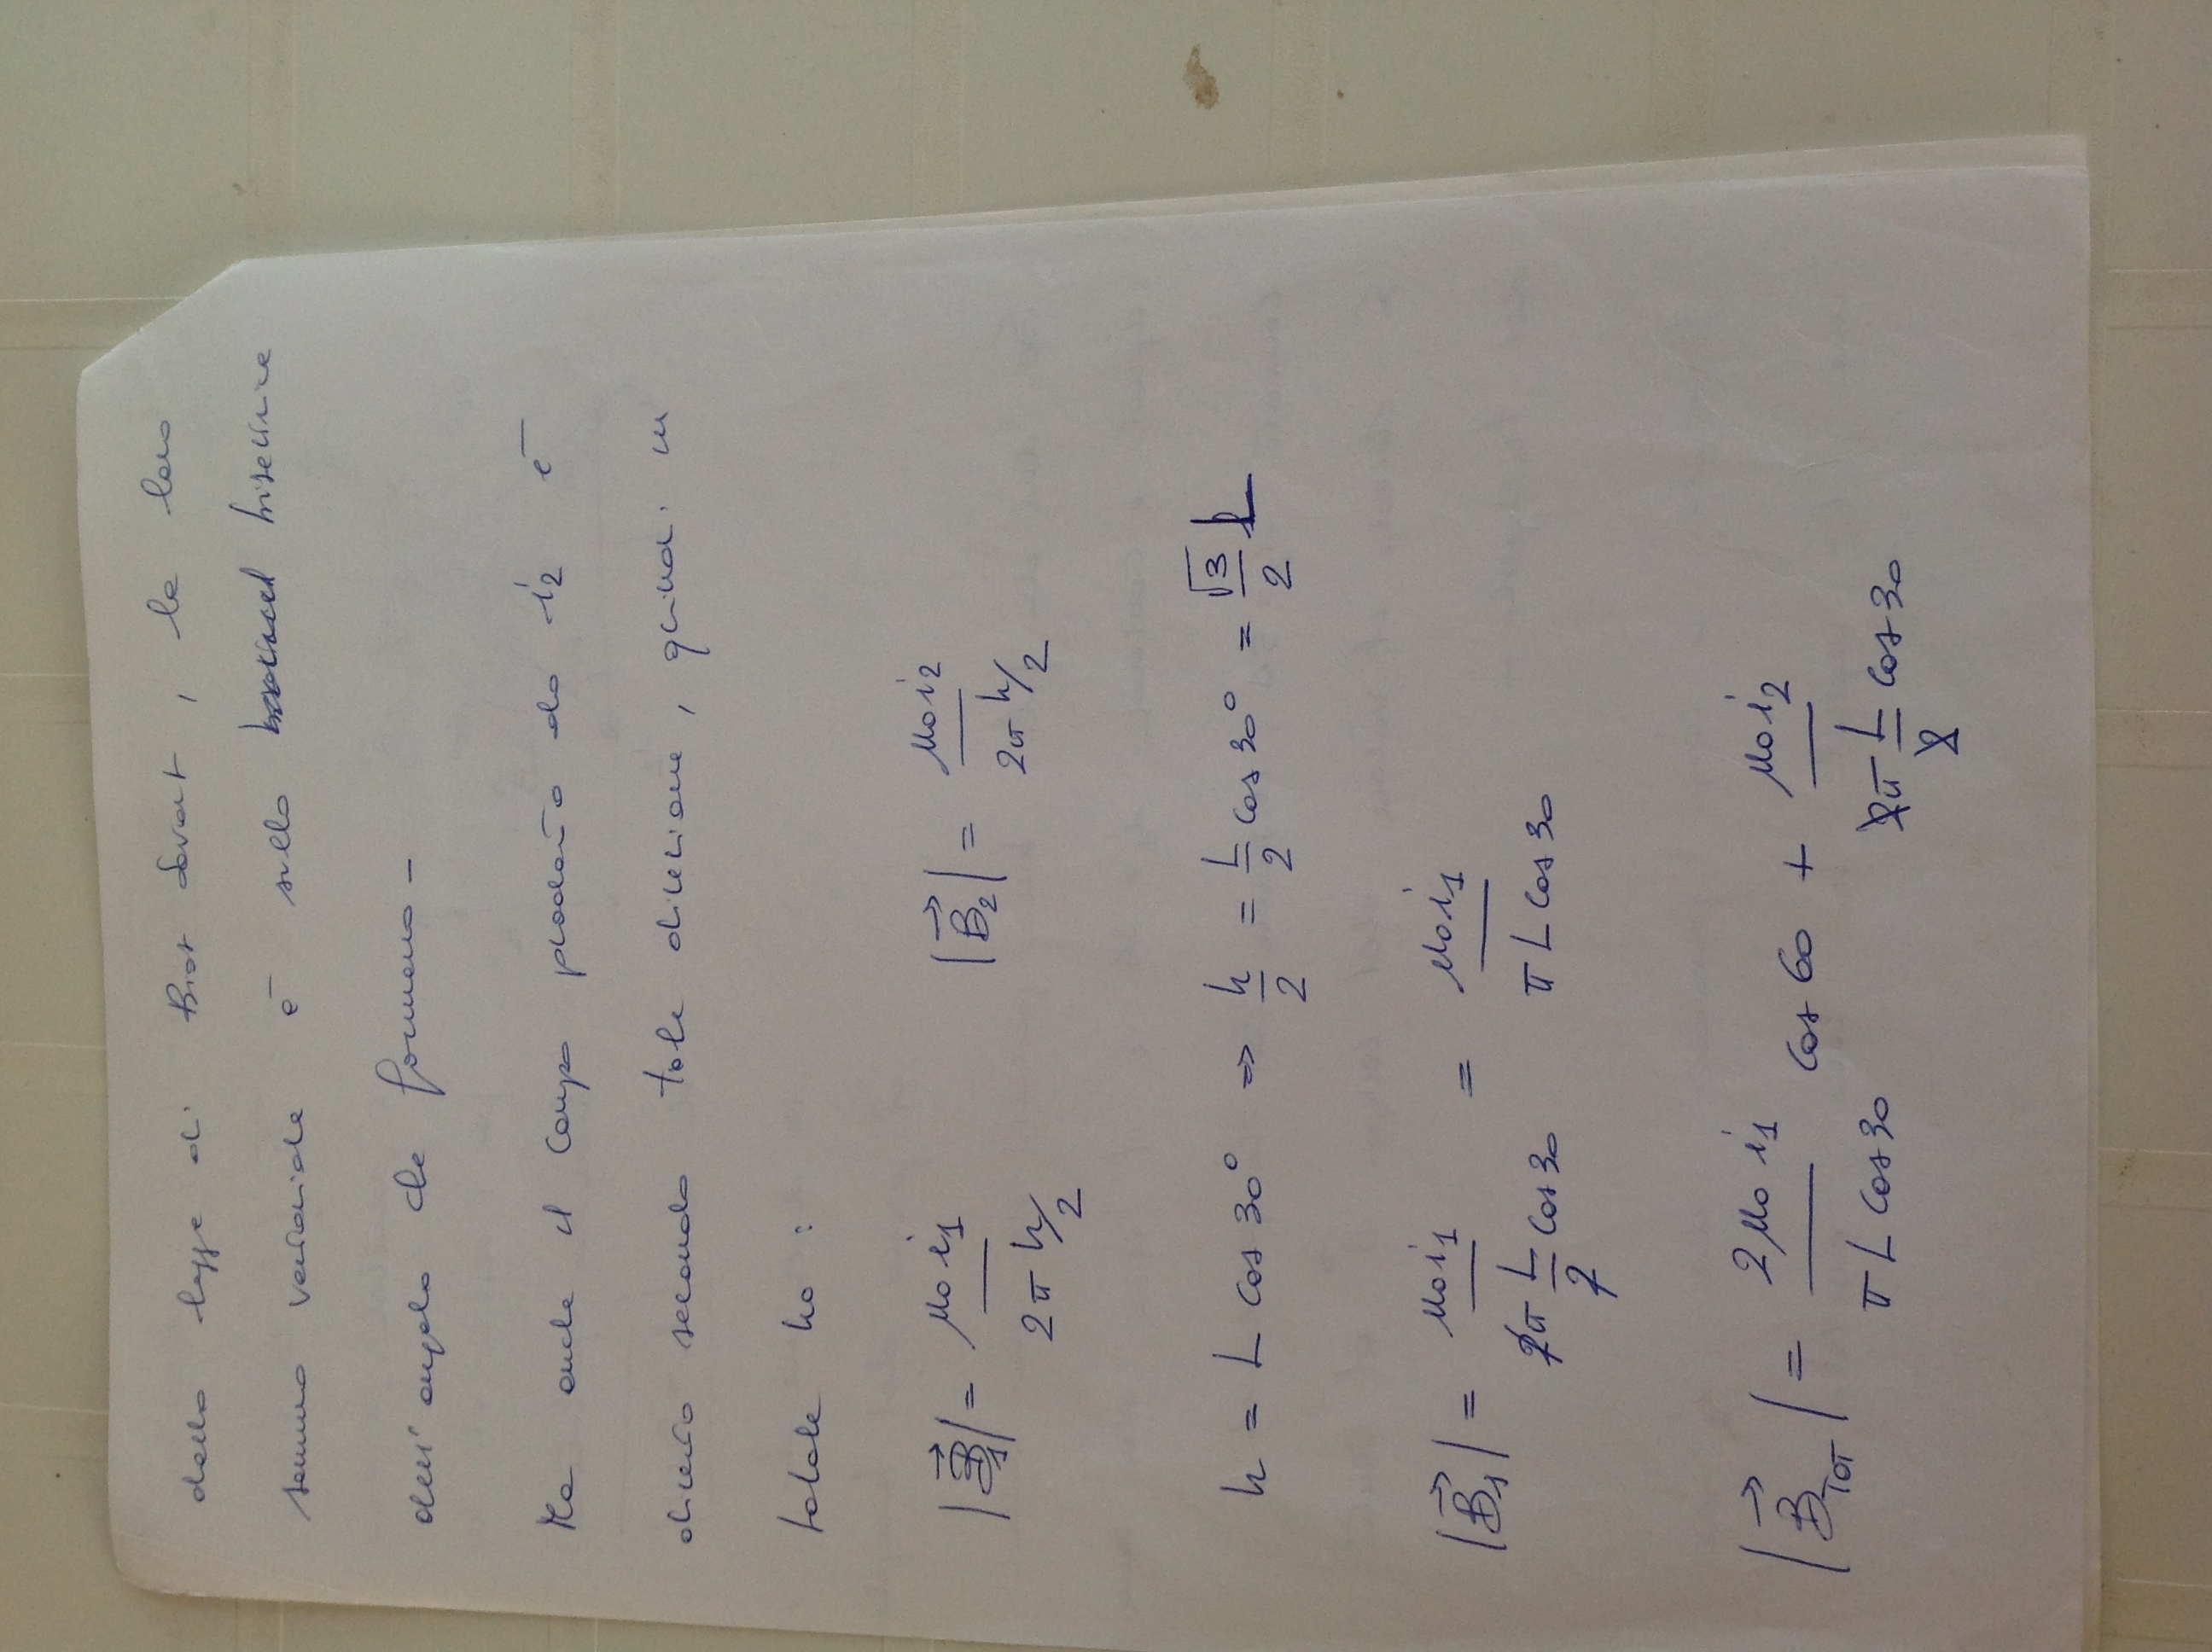 dalla legge di Biot Savart, la loro
somma vettoriale è sulla bisettrice
dell'angolo che formano -
Ma anche il campo prodotto da i₂ è
diretto secondo tale direzione, quindi in
totale ho :
|B⃗₁| = μ₀ i₁ / 2π h/2    |B⃗₂| = μ₀ i₂ / 2π h/2
h = L cos 30° ⇒ h/2 = L/2 cos 30° = √3/2 L
|B⃗₁| = μ₀ i₁ / 2π L/2 cos 30 = μ₀ i₁ / π L cos 30
|B⃗TOT| = 2 μ₀ i₁ / π L cos 30 cos 60 + μ₀ i₂ / 2π L/2 cos 30